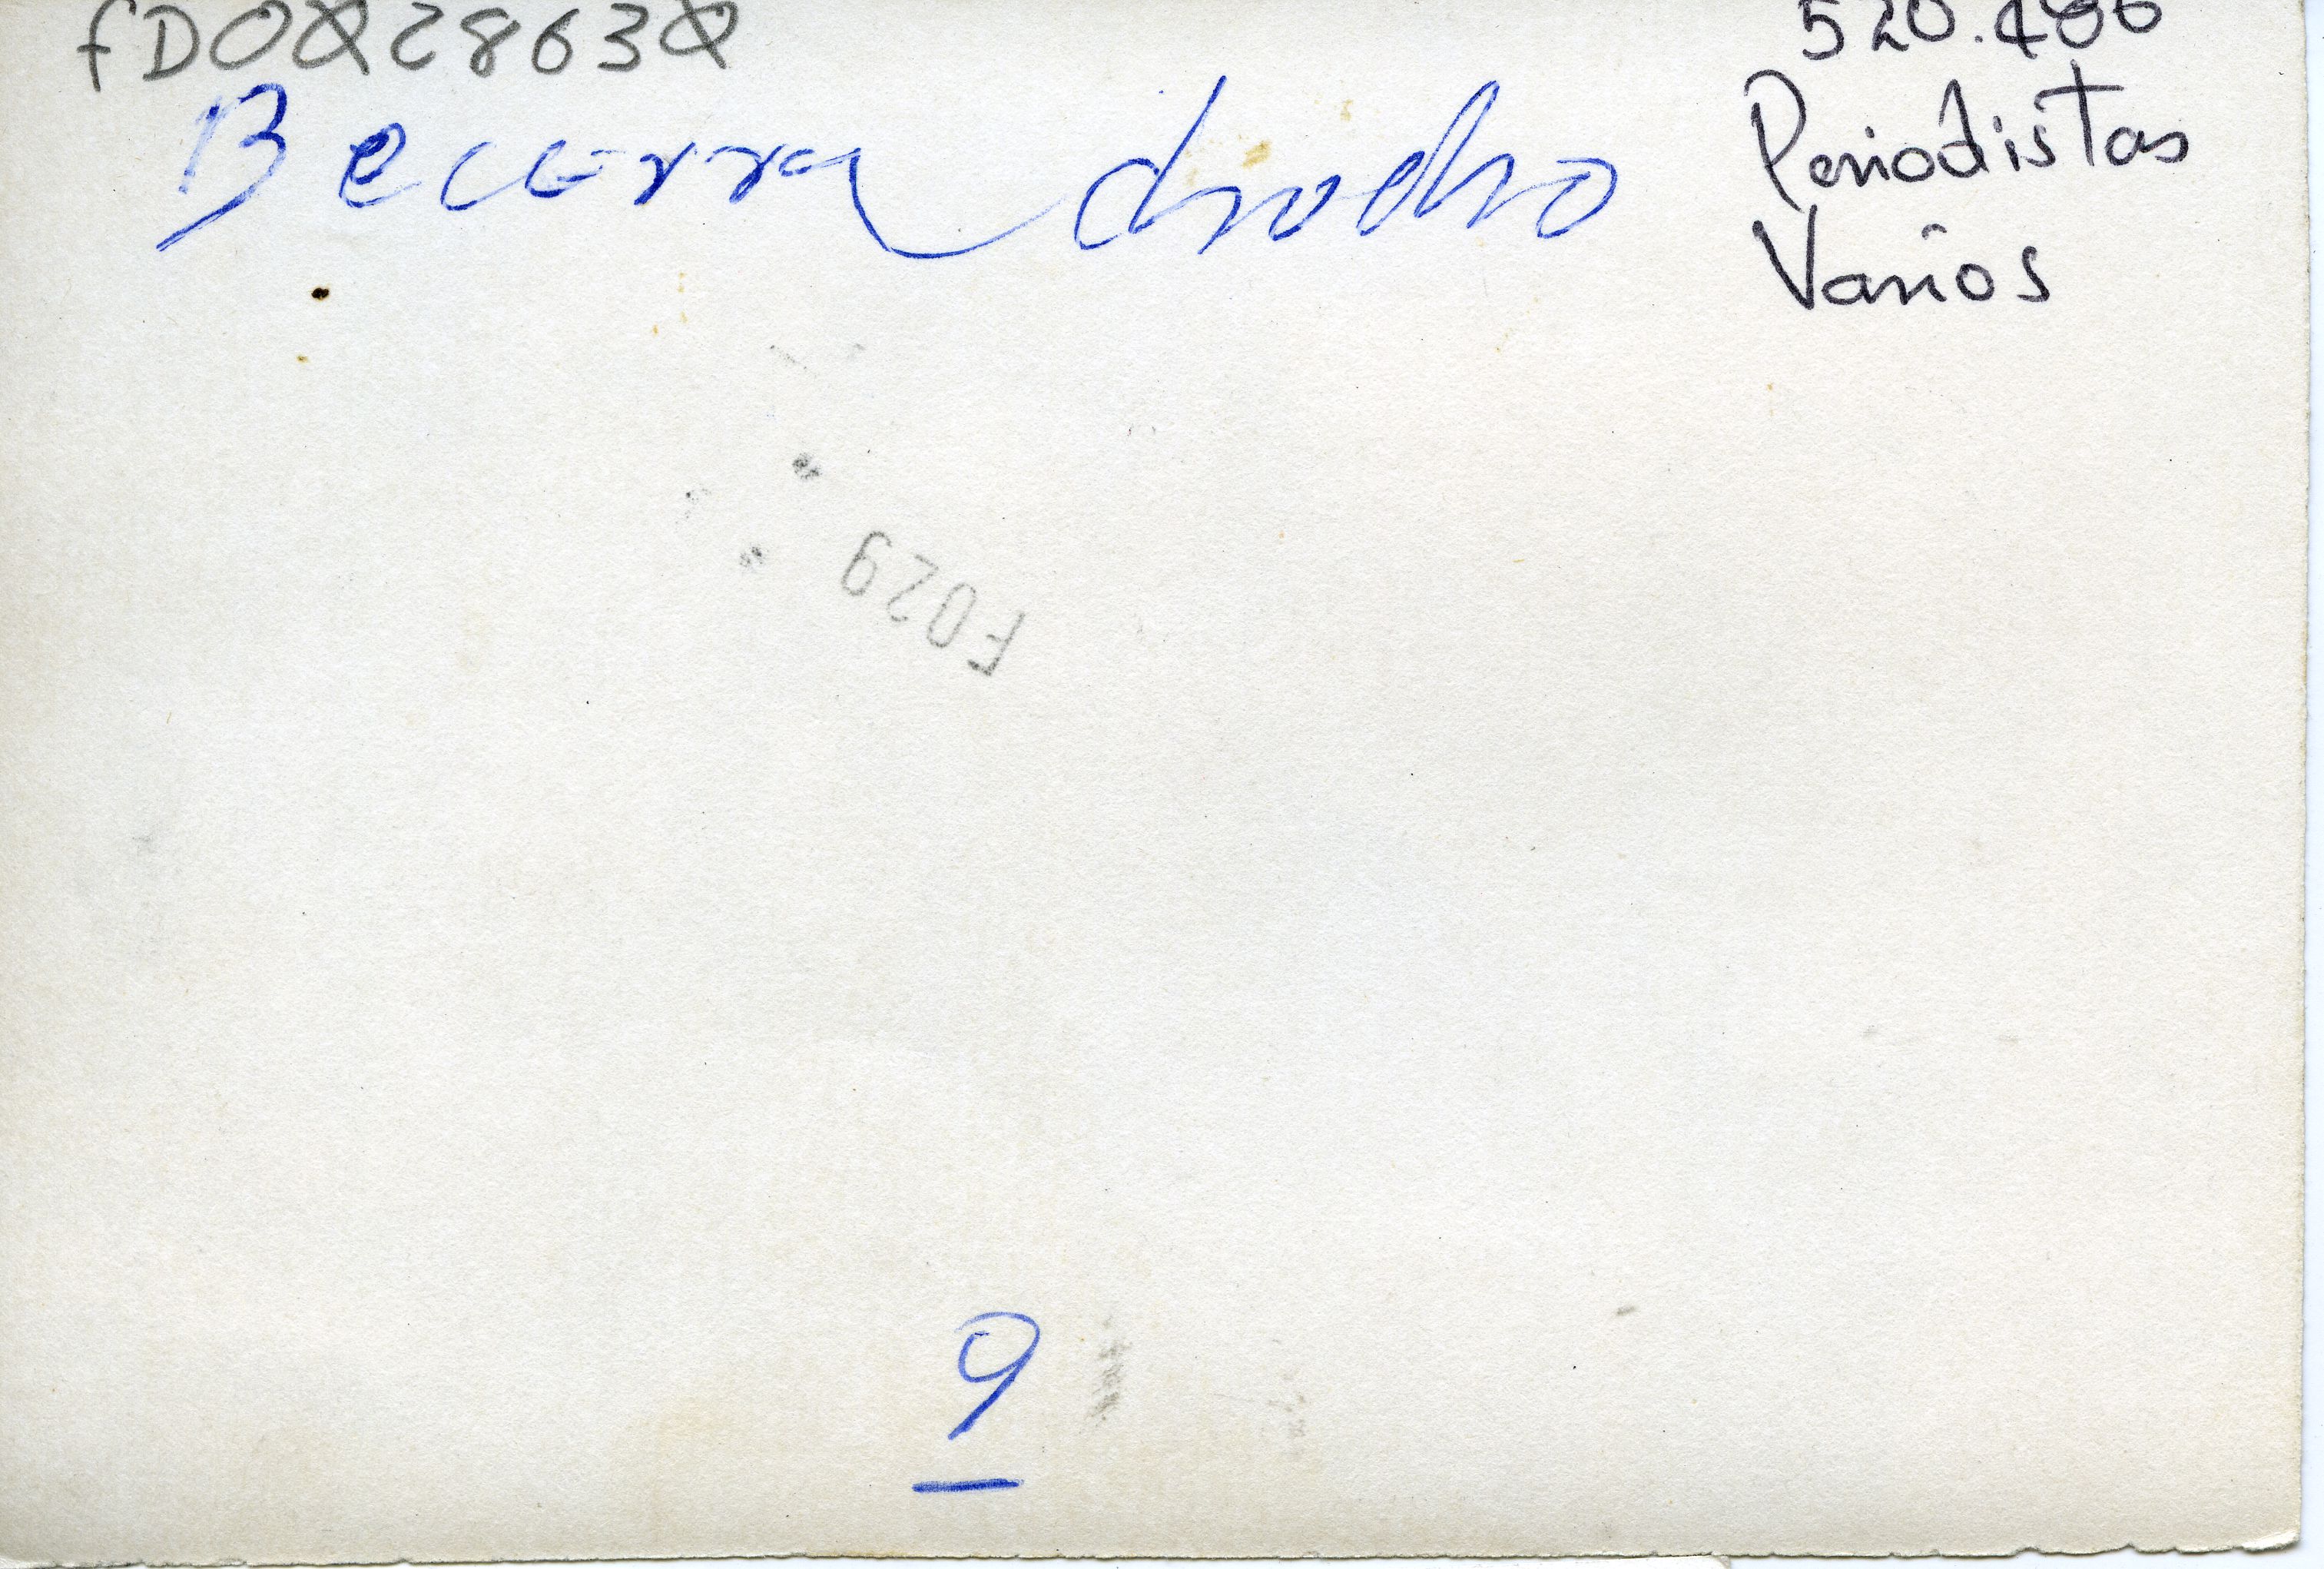 fDO028630
520.486
Becerra
Periodistas
Varios
F029
9